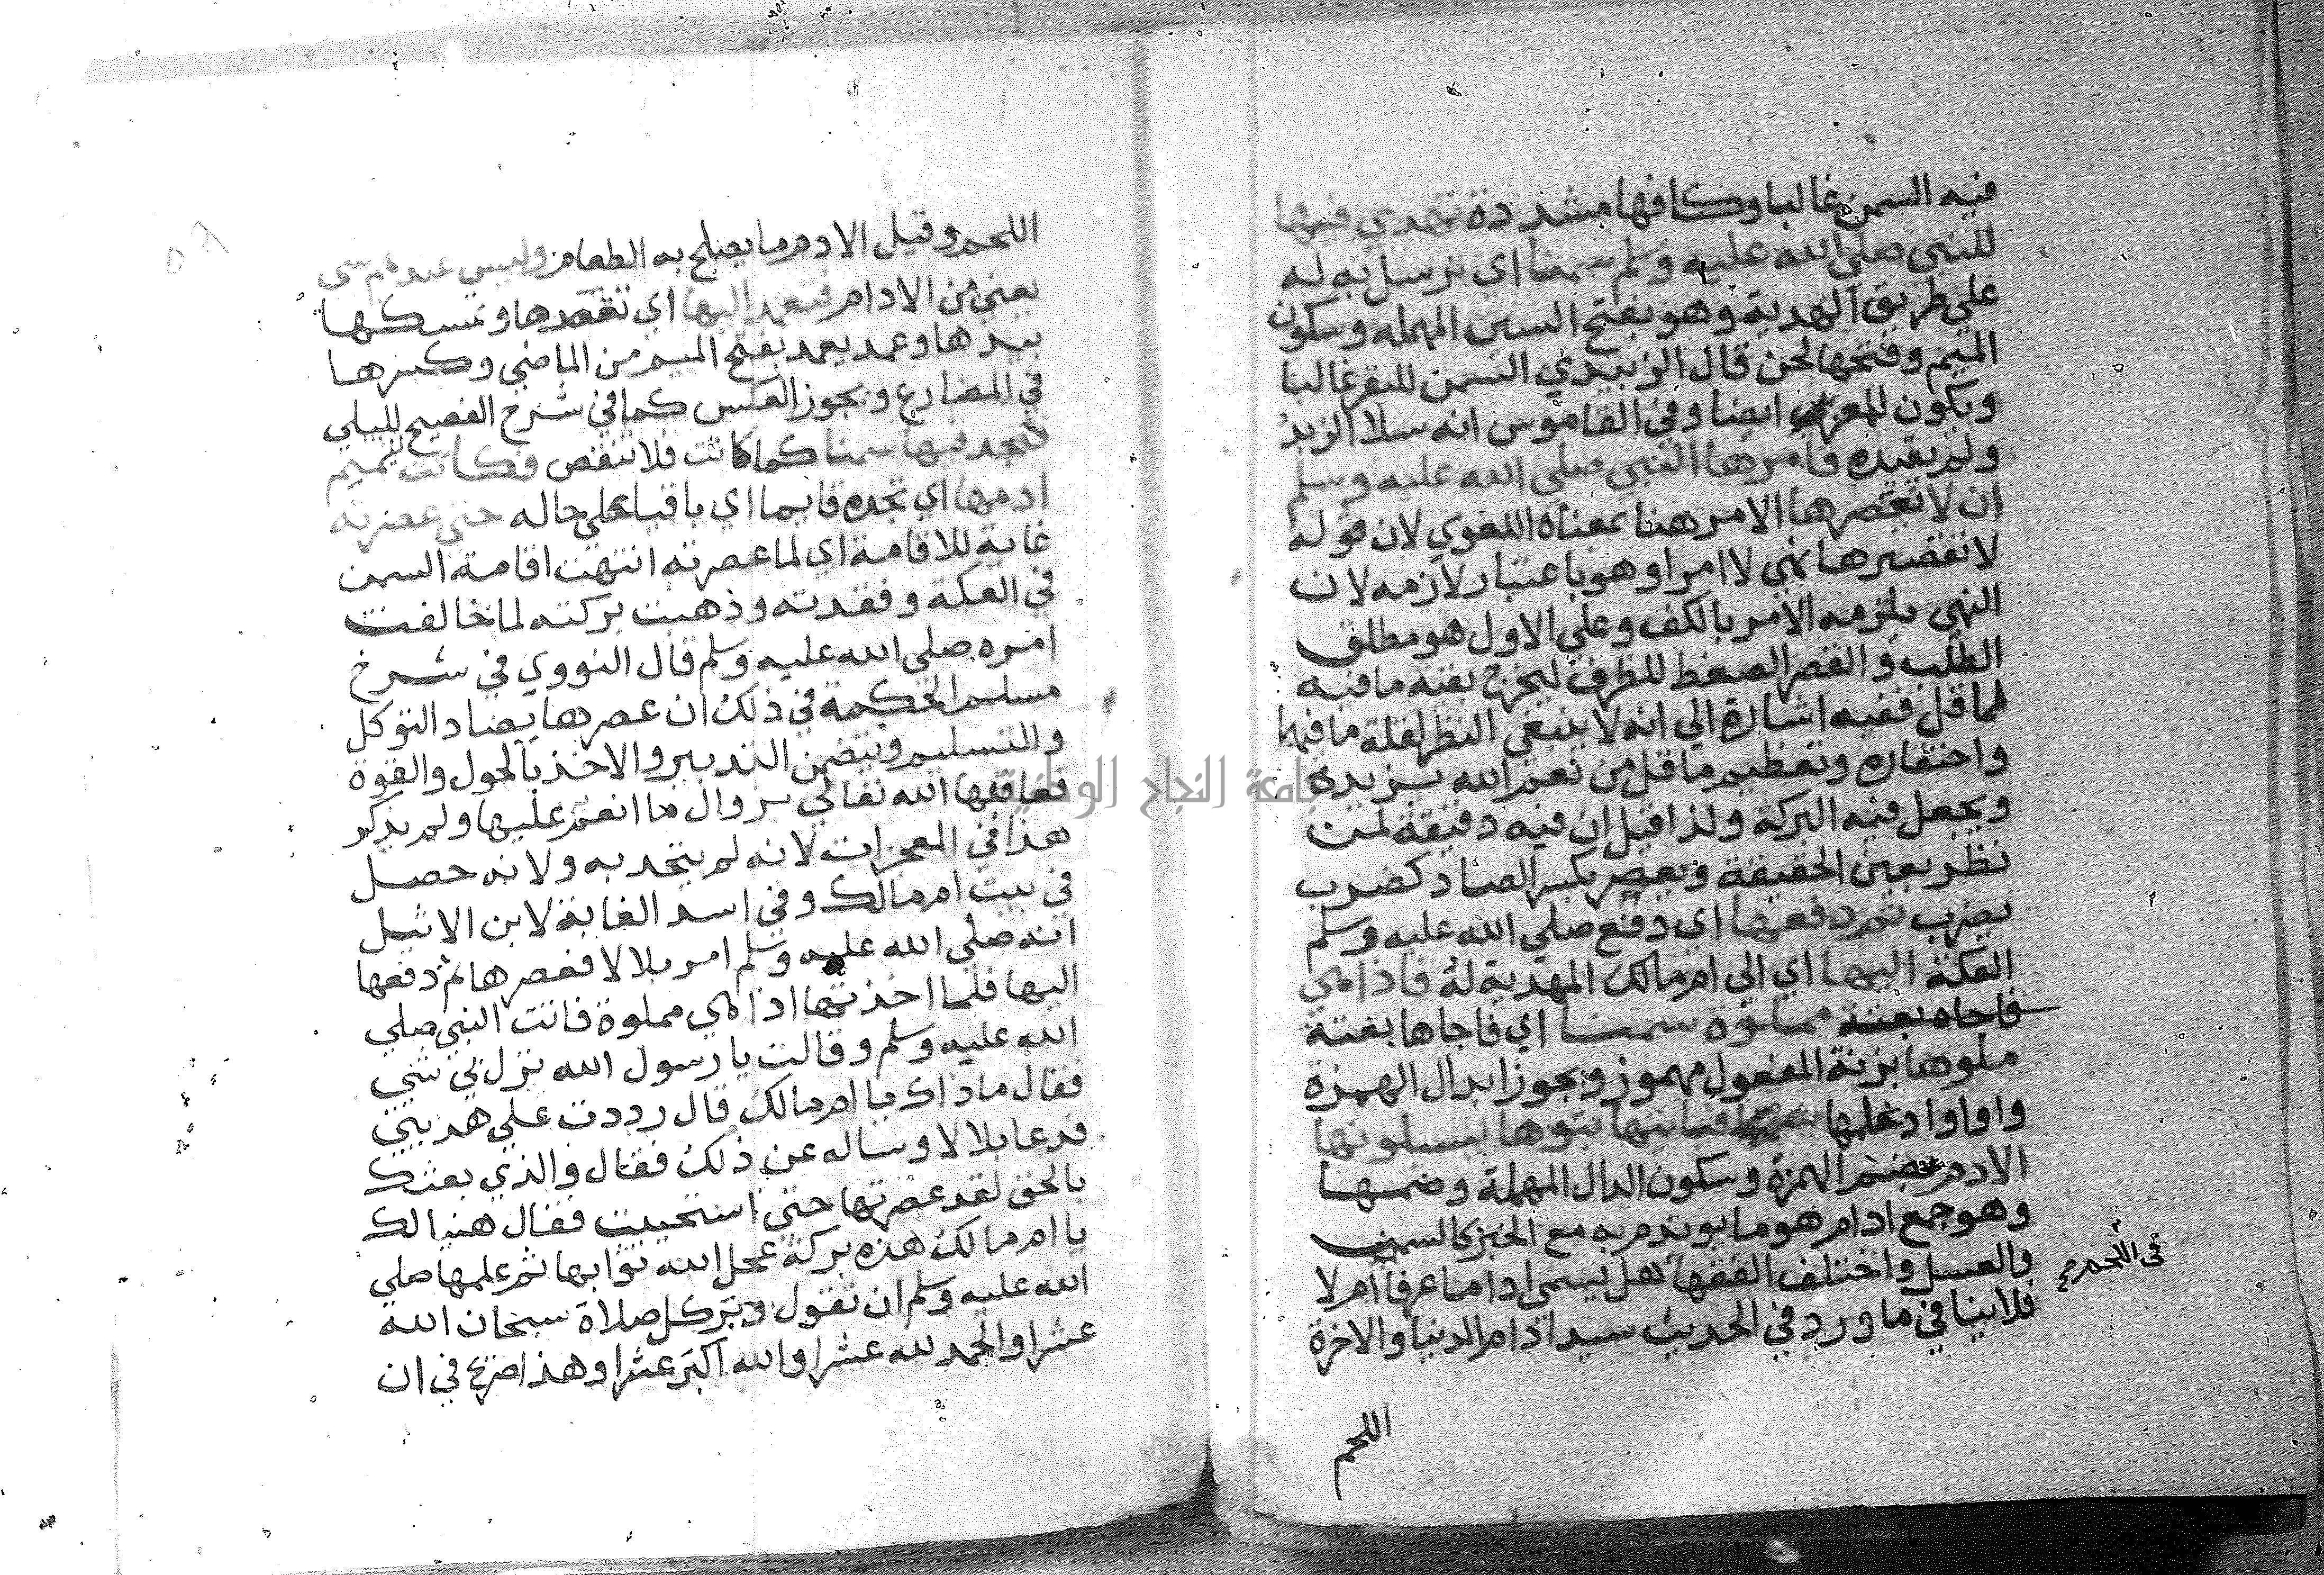 فيه السمن غالبا وكافها مشددة تهدي فيها
للنبي صلي الله عليه وسلم سمنا اي ترسل به له
علي طريق الهدية وهو بفتح السين المهمله وسكون
الميم وفتحها لحن قال الزبيدي السمن للبقر غالبا
ويكون للمعزي ايضا وفي القاموس انه سلا الزبد
ولم يقيده فامرها النبي صلي الله عليه وسلم
ان لا تعصرها الامر هنا بمعناه اللغوي لان قوله
لا تعصرها نهي لا امر او هو باعتبار لازمه لان
النهي يلزمه الامر بالكف وعلي الاول هو مطلق
الطلب والعصر الضغط للظرف ليخرج بقية ما فيه
لما قل ففيه اشارة الي انه لا ينبغي النظر لقلة ما فيها
واحتقاره وتعظيم ما قل من نعم الله يزيده
ويجعل فيه البركة ولذا قيل ان فيه دقيقة لمن
نظر بعين الحقيقة ويعصر بكسر الصاد كضرب
يضرب ثم دفعها اي دفع صلي الله عليه وسلم
العكة اليها اي الي ام مالك المهدية له فاذا هي
فاجاه بغتة مملوة سمنا اي فاجاها بغتة
ملوها بزنة المفعول مهموز ويجوز ابدال الهمزة
واوا وادغامها فياتيها بنوها يسلونها
الادم بضم الهمزة وسكون الدال المهملة وضمها
وهو جمع ادام هو ما يوتدم به مع الخبز كالسمن
والعسل واختلف الفقها هل يسمي اداما عرفا ام لا
في اللحم صح
فلا ينافي ما ورد في الحديث سيد ادام الدنيا والاخرة
اللحم
اللحم وقيل الادم ما يصلح به الطعام وليس عندهم شي
يعني من الادام فتعمد اليها اي تقصدها وتمسكها
بيدها وعمد يعمد بفتح الميم من الماضي وكسرها
في المضارع ويجوز العكس كما في شرح الفصيح للبلي
فتجد فيها سمنا كما كانت فلا تنقص فكانت تقيم
ادمها اي تجده قايما اي باقيا علي حاله حتي عصرته
غاية للاقامة اي لما عصرته انتهت اقامة السمن
في العكة وفقدته وذهبت بركته لما خالفت
امره صلي الله عليه وسلم قال النووي في شرح
مسلم الحكمة في ذلك ان عصرها يضاد التوكل
والتسليم ويتضمن التدبير والاخذ بالحول والقوة
فعاقبها الله تعالي بزوال ما انعم عليها ولم يذكر
جامعة النجاح الوطنية
هذا في المعجزات لانه لم يتحد به ولانه حصل
في بيت ام مالك وفي اسد الغابة لابن الاثيل
انه صلي الله عليه وسلم امر بلالا فعصرها ثم دفعها
اليها فلما اخذتها اذا هي مملوة فاتت النبي صلي
الله عليه وسلم وقالت يا رسول الله نزل في شي
فقال ما ذاك يا ام مالك قال رددت علي هديتي
فدعا بلالا وساله عن ذلك فقال والذي بعثك
بالحق لقد عصرتها حتي استحييت فقال هنيا لك
يا ام مالك هذه بركة عجل الله ثوابها ثم علمها صلي
الله عليه وسلم ان تقول دبر كل صلاة سبحان الله
عشرا والحمد لله عشرا والله اكبر عشرا وهذا صريح في ان